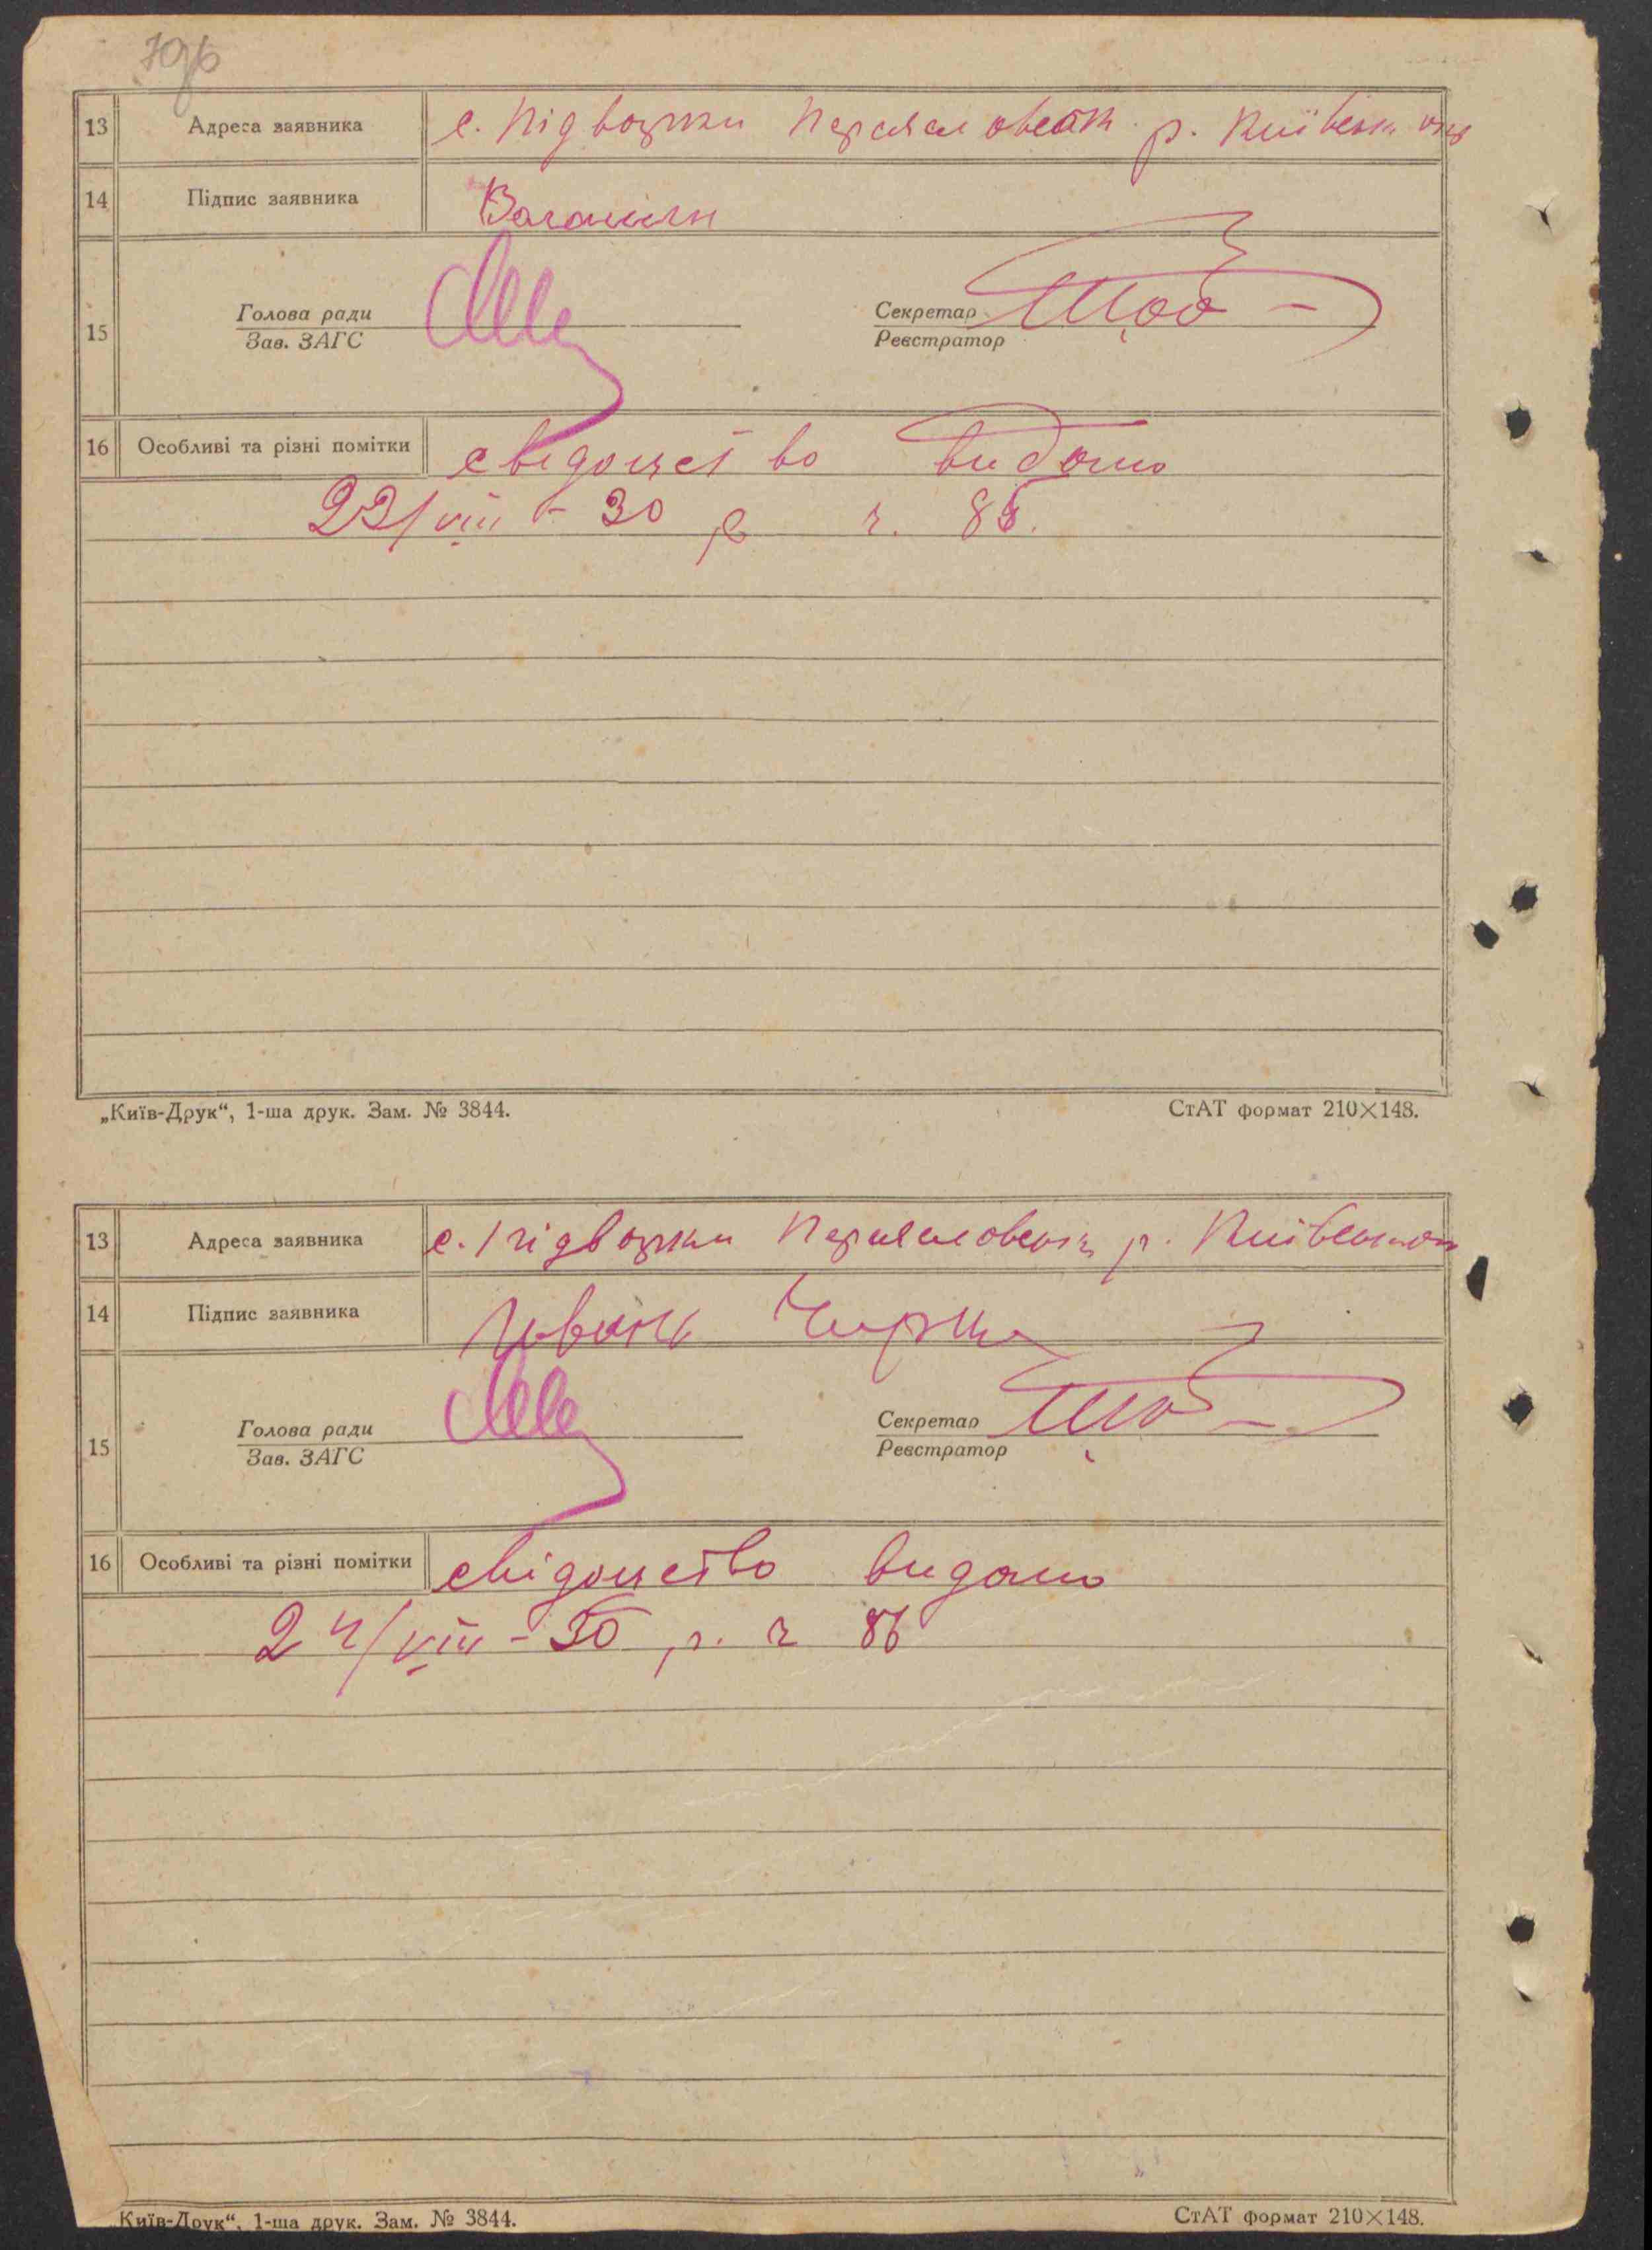 13 Адреса заявника с. Підворки р.
14 Підпис заявника
15 Голова ради Секретар
Зав. ЗАГС Реєстратор
16 Особливі та різні помітки свідоцтво видано
22/VIII - 30 р ч. 85.
„Київ-Друк“, 1-ша друк. Зам. № 3844. СтАТ формат 210×148.
13 Адреса заявника с. Підворки р.
14 Підпис заявника Іван
15 Голова ради Секретар
Зав. ЗАГС Реєстратор
16 Особливі та різні помітки свідоцтво видано
24/VIII - 30 р. ч 86
„Київ-Друк“, 1-ша друк. Зам. № 3844. СтАТ формат 210×148.